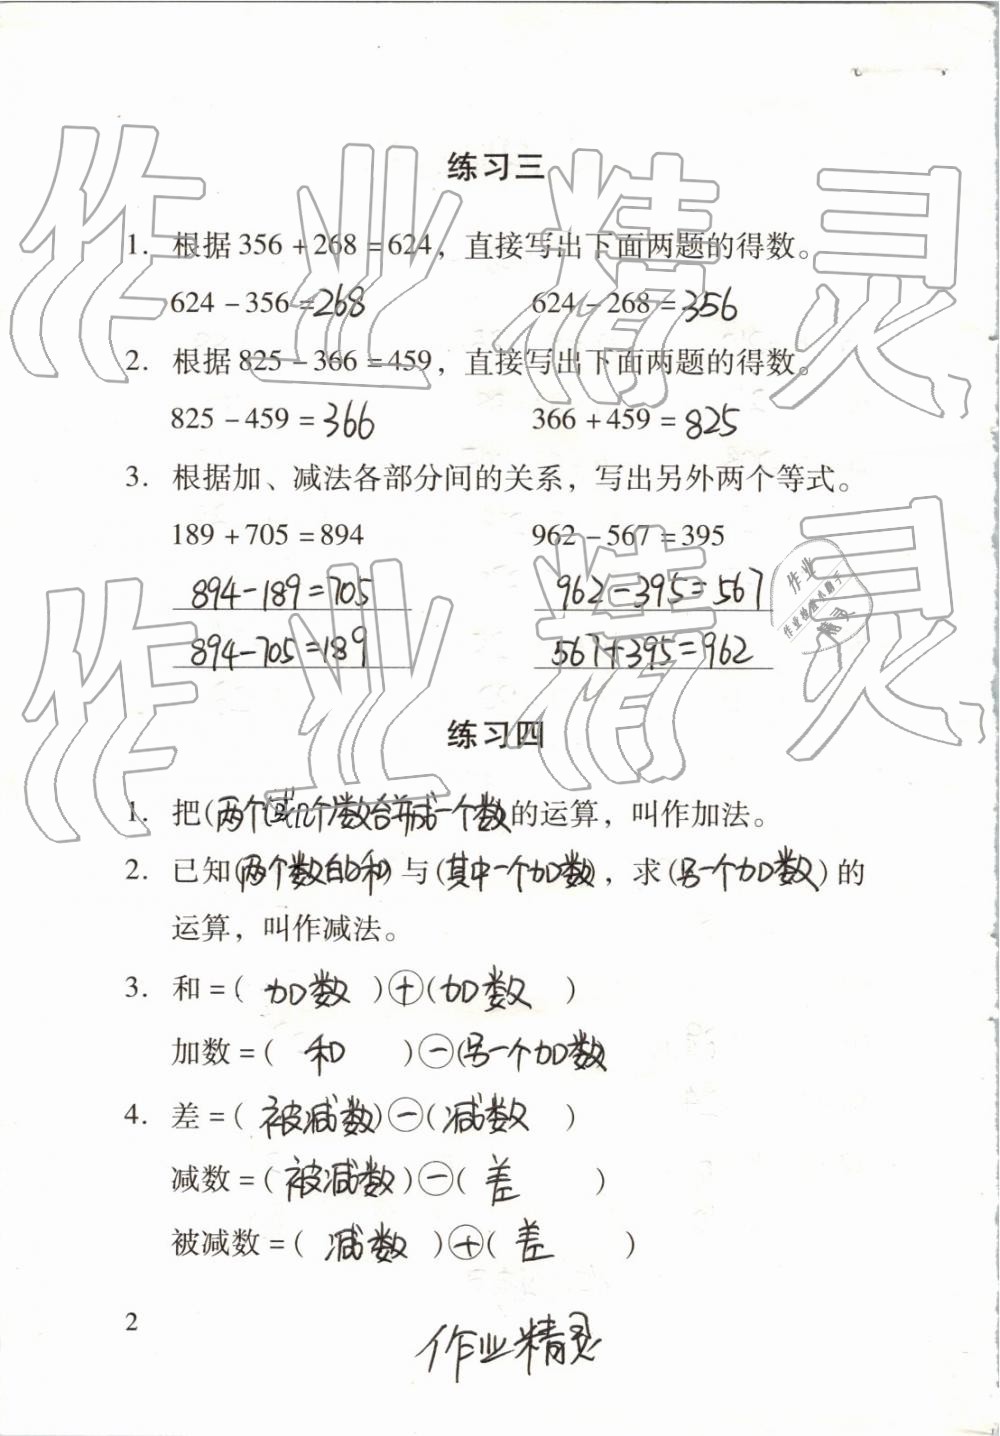 练习三
1. 根据356+268=624，直接写出下面两题的得数。
624-356=268 624-268=356
2. 根据825-366=459，直接写出下面两题的得数。
825-459=366 366+459=825
3. 根据加、减法各部分间的关系，写出另外两个等式。
189+705=894 962-567=395
894-189=705 962-395=567
894-705=189 567+395=962
练习四
1. 把(两个(或几个)数合并成一个数的运算，叫作加法。
2. 已知(两个数的和)与(其中一个加数)，求(另一个加数)的
运算，叫作减法。
3. 和=( 加数 )+(加数 )
加数=( 和 )-(另一个加数)
4. 差=( 被减数)-(减数 )
减数=(被减数)-( 差 )
被减数=( 减数 )+( 差 )
2
作业精灵
作业精灵
作业精灵
作业
作业检查小助手
精灵